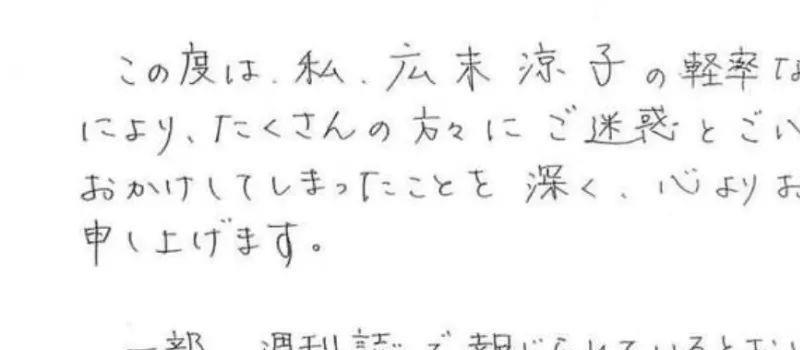 この度は、私、広末涼子の軽率な
により、たくさんの方々にご迷惑とごい
おかけしてしまったことを深く、心よりお
申し上げます。
一部、週刊誌で報じられている